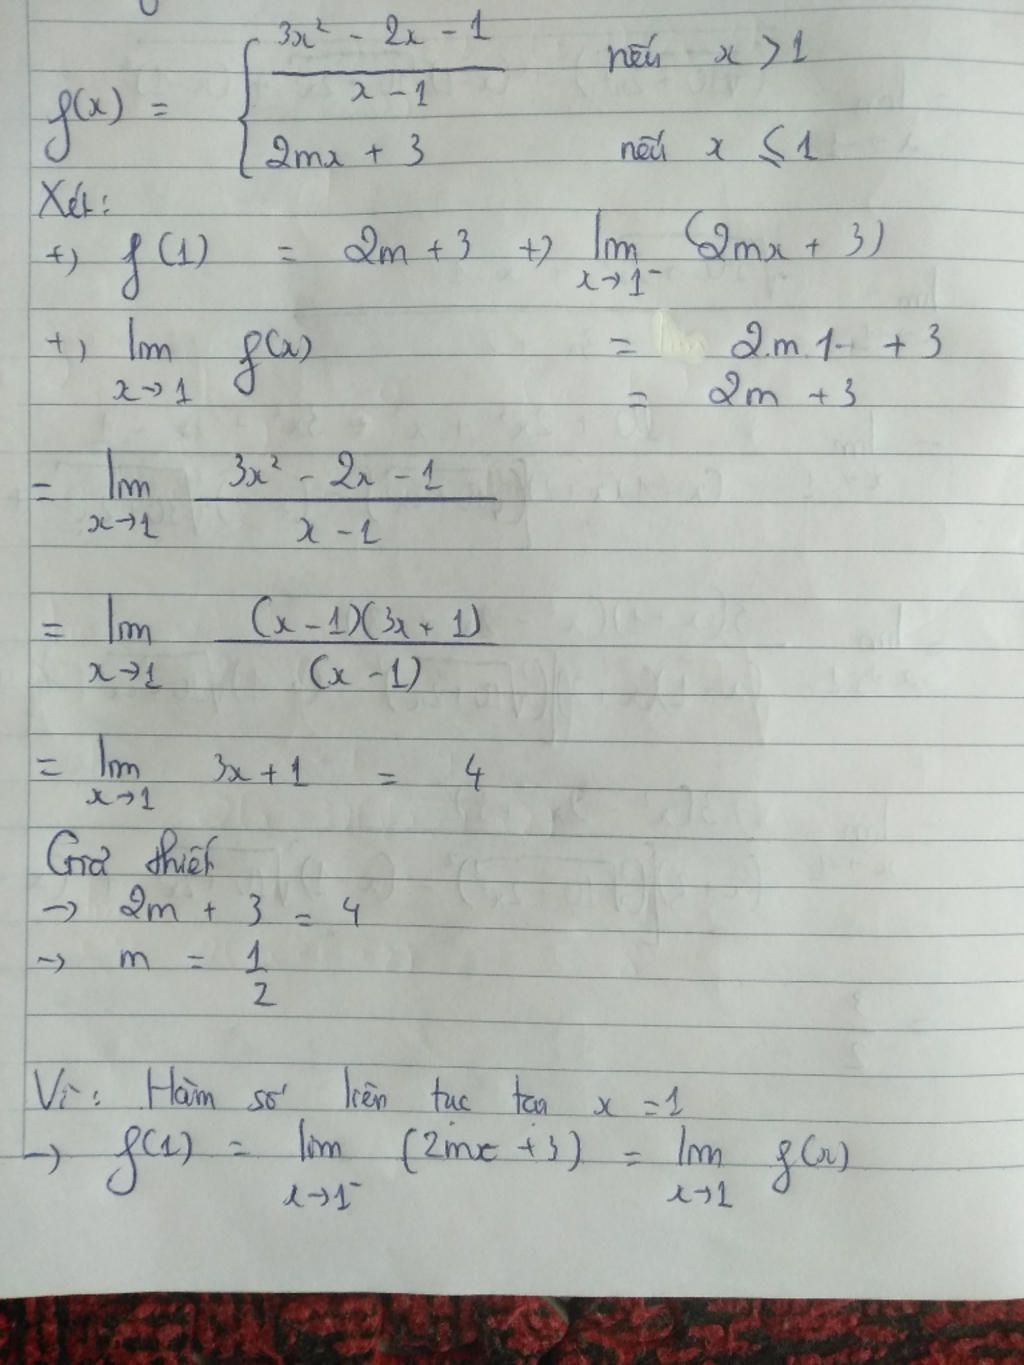 f(x) = { (3x² - 2x - 1) / (x - 1) nếu x > 1
2mx + 3 nếu x ≤ 1
Xét:
+) f(1) = 2m + 3 +) lim x→1⁻ (2mx + 3)
+) lim x→1 f(x) = 2.m.1 + 3
= 2m + 3
= lim x→1 (3x² - 2x - 1) / (x - 1)
= lim x→1 (x - 1)(3x + 1) / (x - 1)
= lim x→1 3x + 1 = 4
Giả thiết
→ 2m + 3 = 4
→ m = 1/2
Vì: Hàm số liên tục tại x = 1
→ f(1) = lim x→1⁻ (2mx + 3) = lim x→1 f(x)